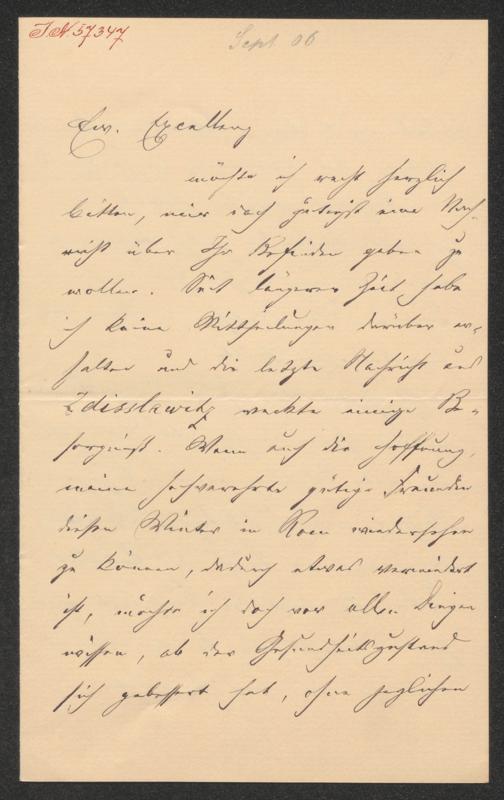 J.N 57347
Sept 06
Ew. Excellenz
möchte ich recht herzlich
bitten, mir doch gütigst eine Nach-
richt über Ihr Befinden geben zu
wollen. Seit längerer Zeit habe
ich keine Mittheilungen darüber er-
halten und die letzte Nachricht aus
Zdisslawitz weckte einige Be-
sorgniß. Wenn auch die Hoffnung,
meine hochverehrte gütige Freundin
diesen Winter in Rom wiedersehen
zu können, dadurch etwas vermindert
ist, möchte ich doch vor allen Dingen
wissen, ob der Gesundheitszustand
sich gebessert hat, ohne jeglichen